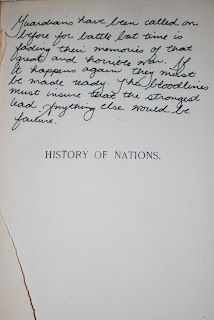 Guardians have been called on
before for battle but time is
fading their memories of that
great and horrible war. If
it happens again they must
be made ready. The bloodlines
must insure that the strongest
lead. Anything else would be
failure.
HISTORY OF NATIONS.